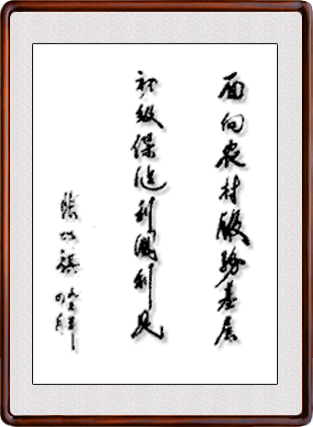 面向农村服务基层
初级保健利国利民
张以祺